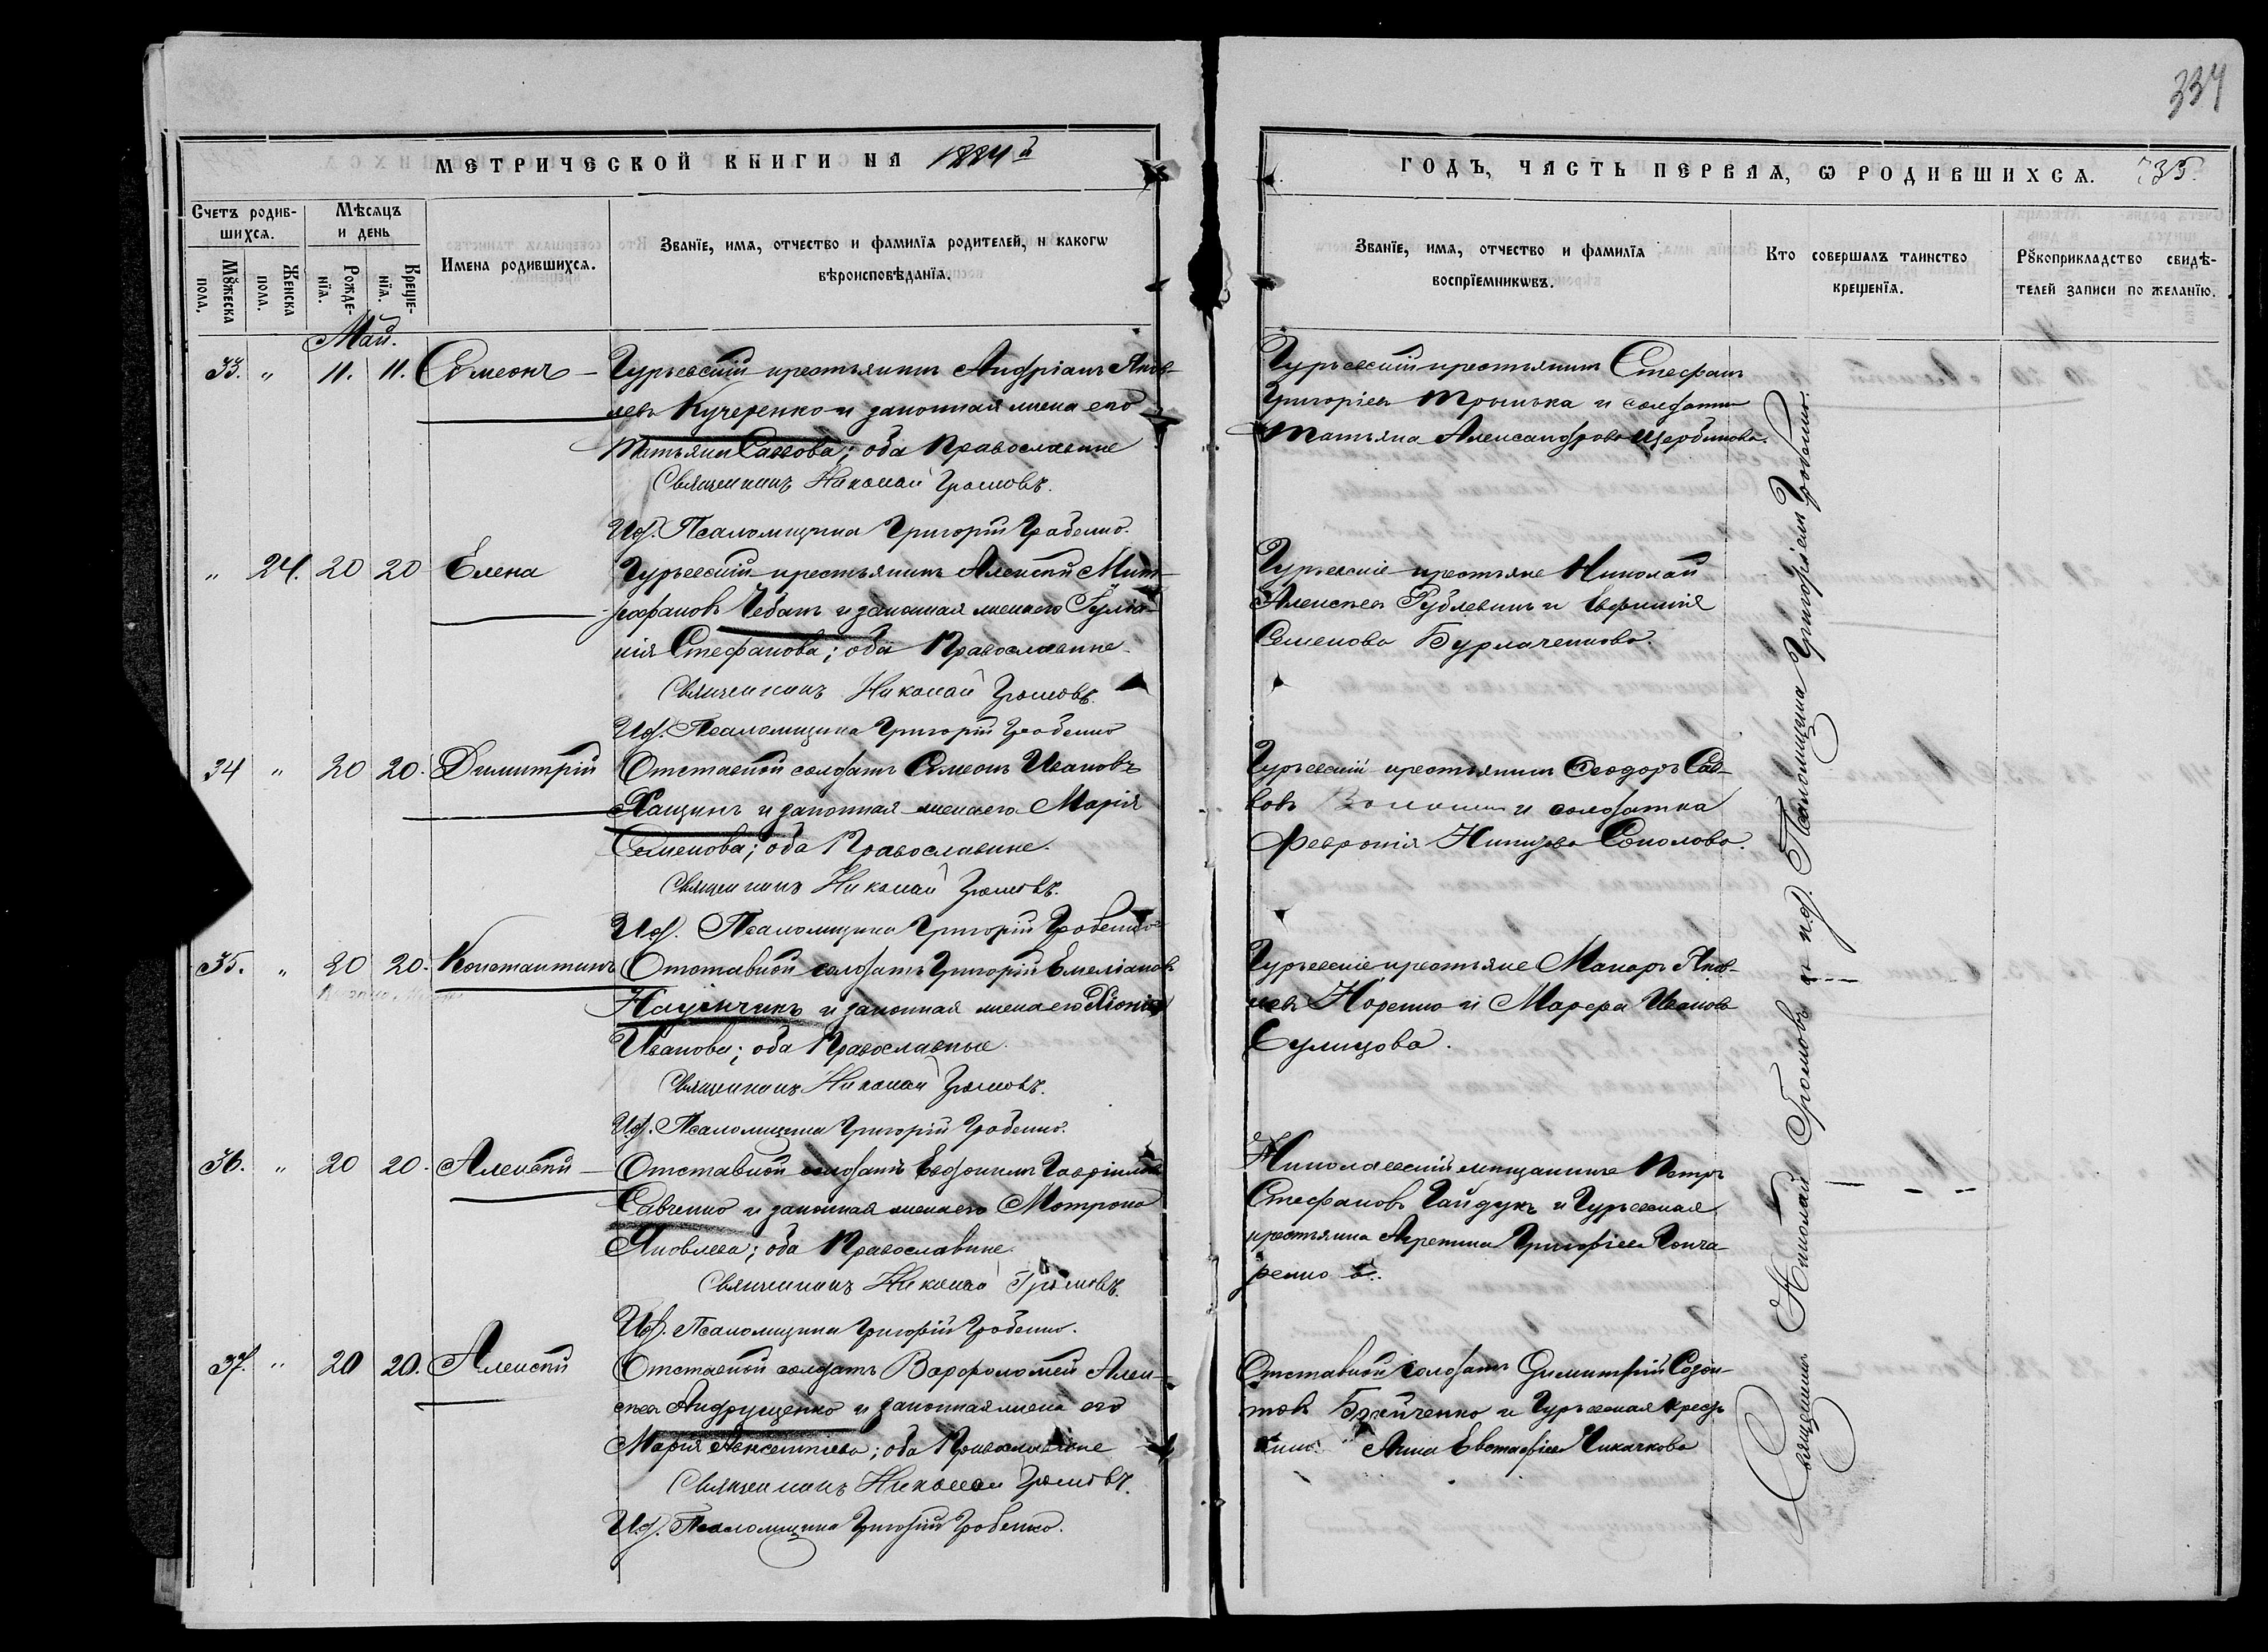 334
МЕТРИЧЕСКОЙ КНИГИ НА 1884й
ГОДЪ, ЧАСТЬ ПЕРВАЯ, Ѡ РОДИВШИХСЯ. 735.
Счетъ родив-
шихся.
Мѣсяцъ
и день
Мꙋжеска
пола.
Женска
пола.
Рожде-
нїя.
Креще-
нїя.
Имена родившихся.
Званїе, имя, отчество и фамилїя родителей, и какогѡ
вѣроисповѣданїя.
Званїе, имя, отчество и фамилїя
воспрїемникѡвъ.
Кто совершалъ таинство
крещенїя.
Рꙋкоприкладство свидѣ-
телей записи по желанїю.
Май.
33. " 11. 11. Симеонъ
Гурьевскій крестьянинъ Андріанъ Яков-
левъ Кучеренко и законная жена его
Татьяна Саввова; оба Православные
Священникъ Николай Громовъ.
И.д. Псаломщика Григорій Гробенко.
Гурьевскій крестьянинъ Стефанъ
Григорьевъ и солдатка
Татьяна Александрова Щербинова.
" 24. 20 20 Елена
Гурьевскій крестьянинъ Алексѣй Мит-
рофановъ Чебанъ и законная жена его Іуліа-
нія Стефанова; оба Православные
Священникъ Николай Громовъ.
И.д. Псаломщика Григорій Гробенко
Гурьевскіе крестьяне Николай
Алексѣевъ Рублевинъ и Евфимія
Семенова Бурлаченкова.
34 " 20 20. Димитрій
Отставной солдатъ Симеонъ Ивановъ
Хащинъ и законная жена его Марія
Семенова; оба Православные.
Священникъ Николай Громовъ.
И.д. Псаломщика Григорій Гробенко
Гурьевскій крестьянинъ Ѳеодоръ Сав-
вовъ и солдатка
Февронія Соколова.
35. " 20 20. Константинъ
Отставной солдатъ Григорій Емеліановъ
и законная жена его Хіонія
Иванова; оба Православные.
Священникъ Николай Громовъ.
И.д. Псаломщика Григорій Гробенко.
Гурьевскіе крестьяне Макаръ Яков-
левъ Норенко и Марфа Иванова
Сулицова.
36. " 20 20. Алексѣй
Отставной солдатъ Евдокимъ Гавріиловъ
Савченко и законная жена его Мотрона
Яковлева; оба Православные.
Священникъ Николай Громовъ.
И.д. Псаломщика Григорій Гробенко.
Николаевскій мещанинъ Петръ
Стефановъ Гайдукъ и Гурьевская
крестьянка Агрепина Григорьева Гонча-
ренко
37. " 20 20. Алексѣй
Отставной солдатъ Варфоломей Алек-
сѣевъ Андрущенко и законная жена его
Марія Авксентіева; оба Православные
Священникъ Николай Громовъ.
И.д. Псаломщика Григорій Гробенко.
Отставной солдатъ Димитрій Созон-
товъ и Гурьевская крестьян
Анна Евстафіева Чикачкова
Священникъ Николай Громовъ и и.д. Псаломщика Григорій Гробенко.